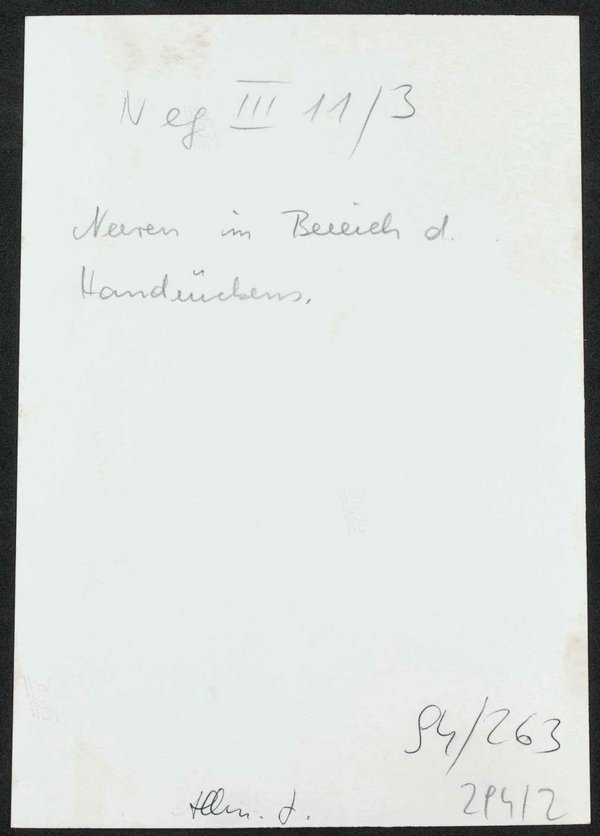 Neg III 11/3
Nerven im Bereich d.
Handrückens.
94/263
294/2